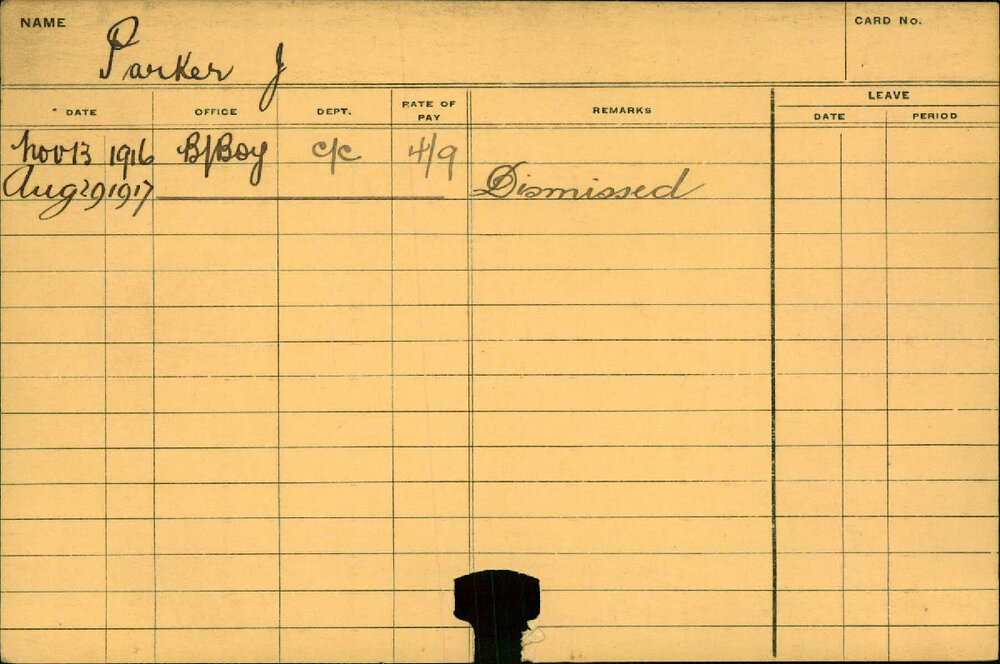 NAME Parker J CARD No.
LEAVE
DATE OFFICE DEPT. RATE OF PAY REMARKS DATE PERIOD
Nov 13 1916 B/Boy C/C 4/9
Aug 29 1917 Dismissed